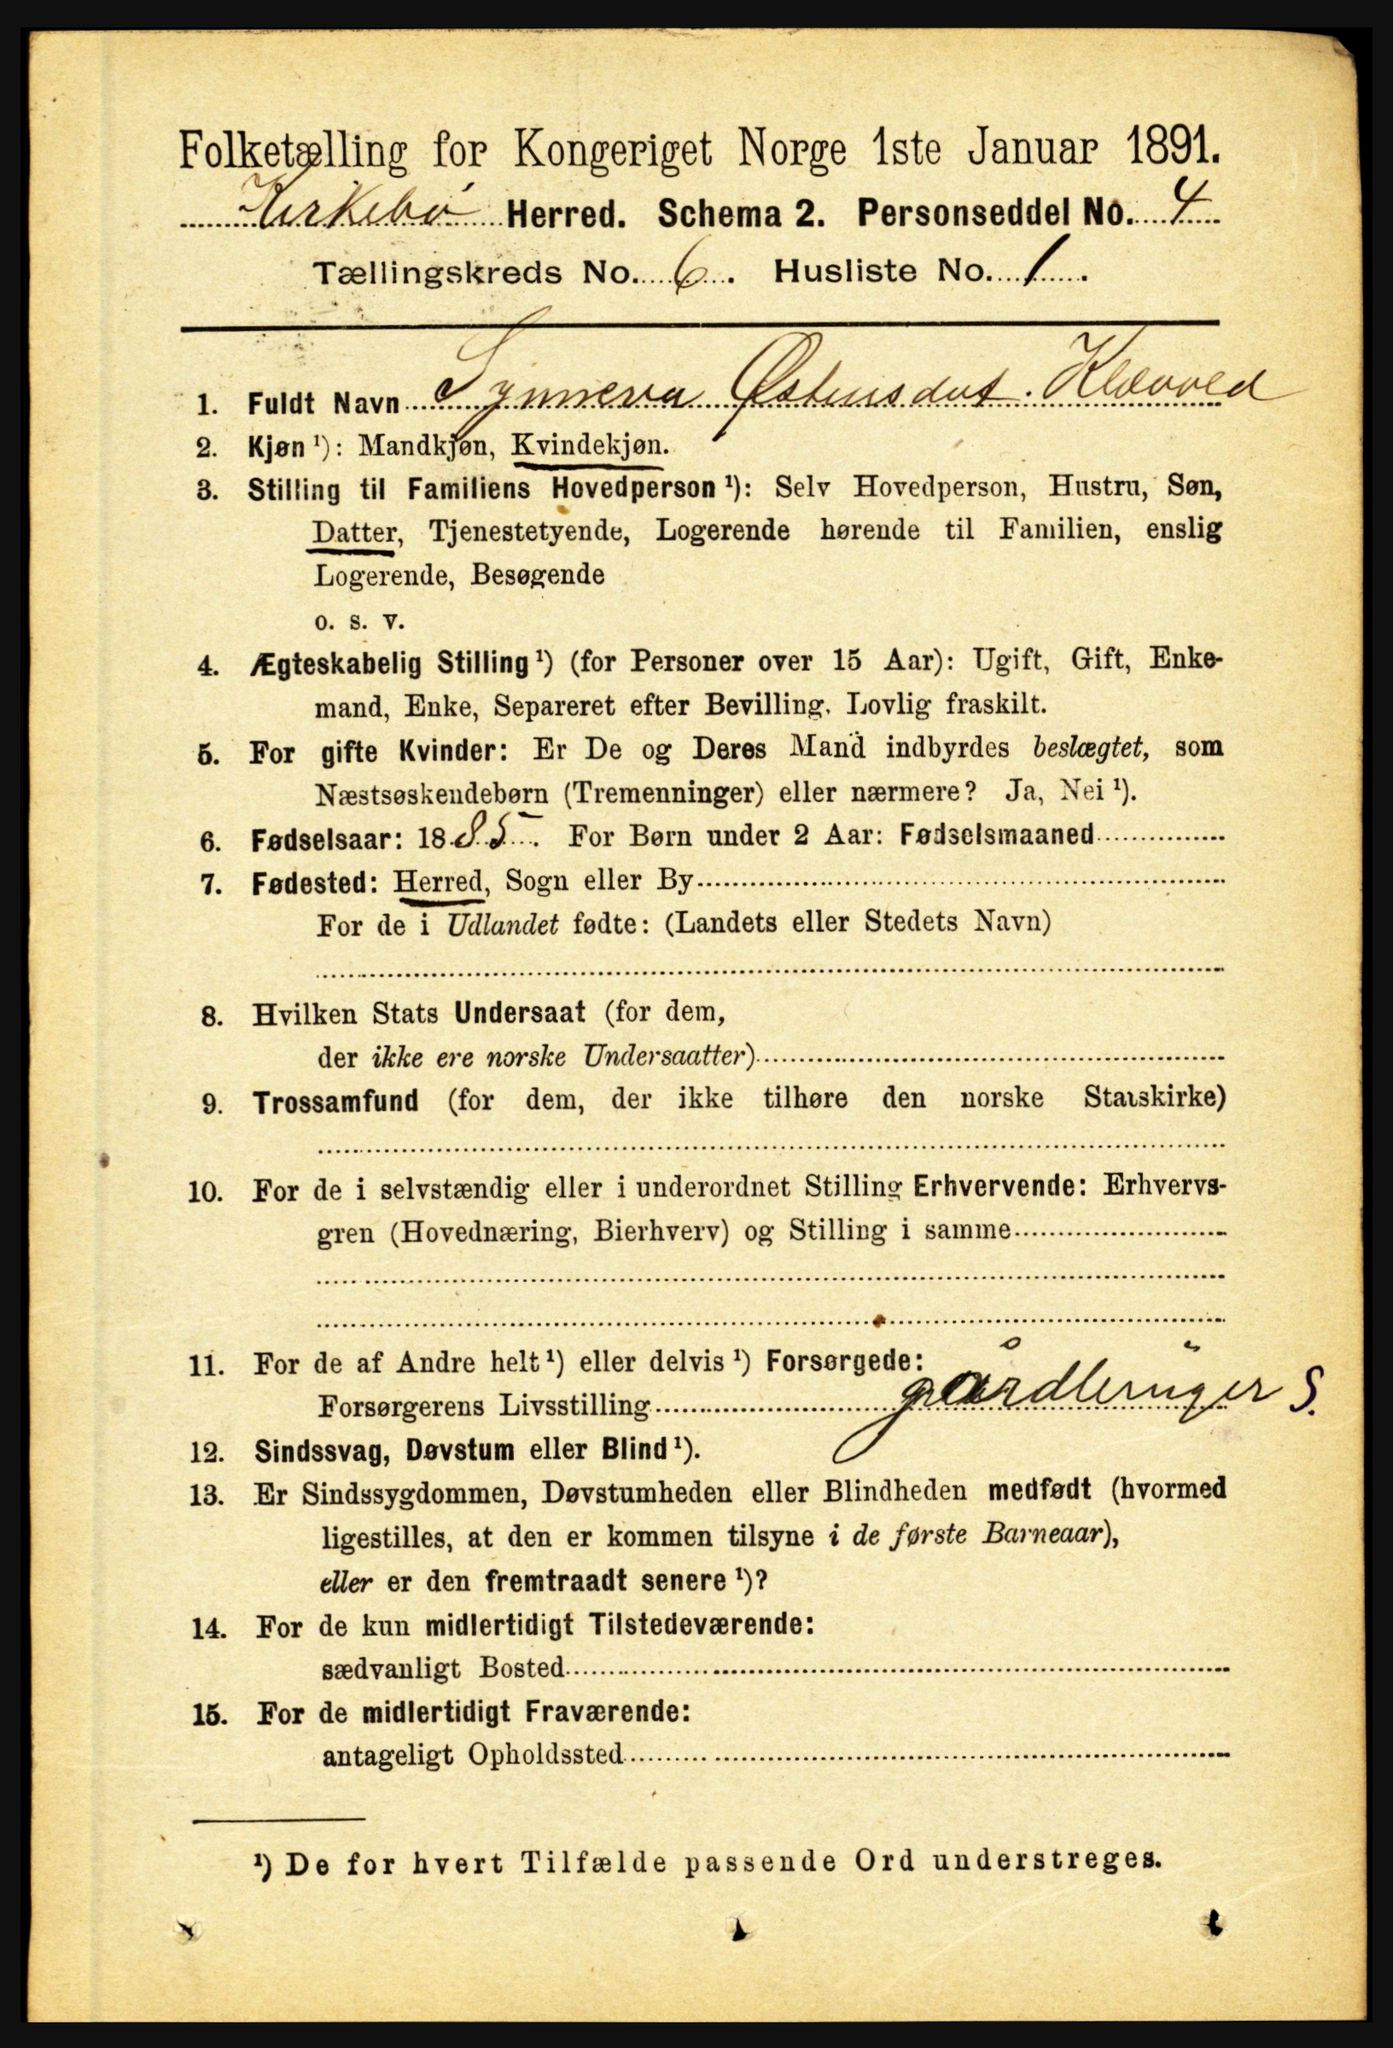 Folketælling for Kongeriget Norge 1ste Januar 1891.
Kirkebø Herred. Schema 2. Personseddel No. 4
Tællingskreds No. 6. Husliste No. 1.
1. Fuldt Navn Synneva Østensdat.
2. Kjøn ¹): Mandkjøn, Kvindekjøn.
3. Stilling til Familiens Hovedperson ¹): Selv Hovedperson, Hustru, Søn,
Datter, Tjenestetyende, Logerende hørende til Familien, enslig
Logerende, Besøgende
o. s. v.
4. Ægteskabelig Stilling ¹) (for Personer over 15 Aar): Ugift, Gift, Enke-
mand, Enke, Separeret efter Bevilling. Lovlig fraskilt.
5. For gifte Kvinder: Er De og Deres Mand indbyrdes beslægtet, som
Næstsøskendebørn (Tremenninger) eller nærmere? Ja, Nei ¹).
6. Fødselsaar: 1885. For Børn under 2 Aar: Fødselsmaaned
7. Fødested: Herred, Sogn eller By
For de i Udlandet fødte: (Landets eller Stedets Navn)
8. Hvilken Stats Undersaat (for dem,
der ikke ere norske Undersaatter)
9. Trossamfund (for dem, der ikke tilhøre den norske Statskirke)
10. For de i selvstændig eller i underordnet Stilling Erhvervende: Erhvervs-
gren (Hovednæring, Bierhverv) og Stilling i samme
11. For de af Andre helt ¹) eller delvis ¹) Forsørgede:
Forsørgerens Livsstilling gårdbruger S.
12. Sindssvag, Døvstum eller Blind ¹).
13. Er Sindssygdommen, Døvstumheden eller Blindheden medfødt (hvormed
ligestilles, at den er kommen tilsyne i de første Barneaar),
eller er den fremtraadt senere ¹)?
14. For de kun midlertidigt Tilstedeværende:
sædvanligt Bosted
15. For de midlertidigt Fraværende:
antageligt Opholdssted
¹) De for hvert Tilfælde passende Ord understreges.